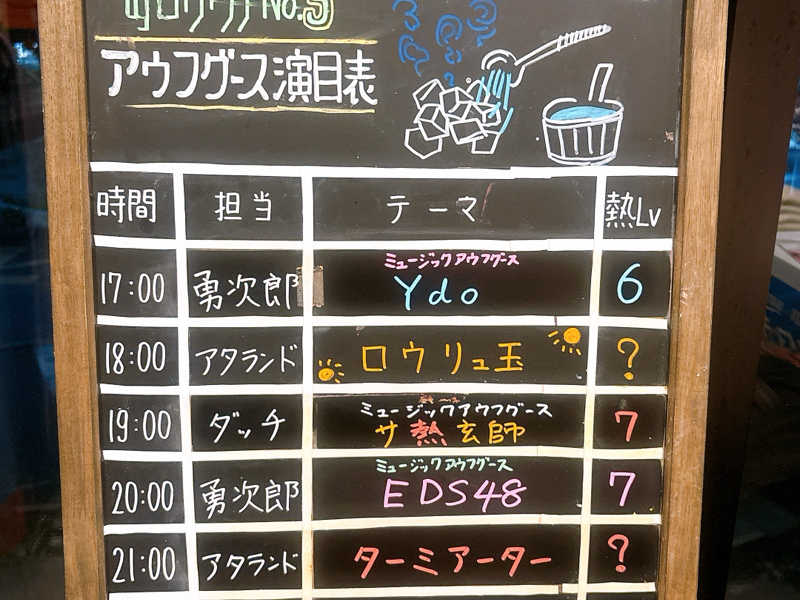 No.5
アウフグース演目表
時間 担当 テーマ 熱Lv
17:00 勇次郎 ミュージックアウフグース Ydo 6
18:00 アタランド ロウリュ玉 ?
19:00 ダッチ ミュージックアウフグース サ熱玄師 7
20:00 勇次郎 ミュージックアウフグース EDS48 7
21:00 アタランド ターミアーター ?